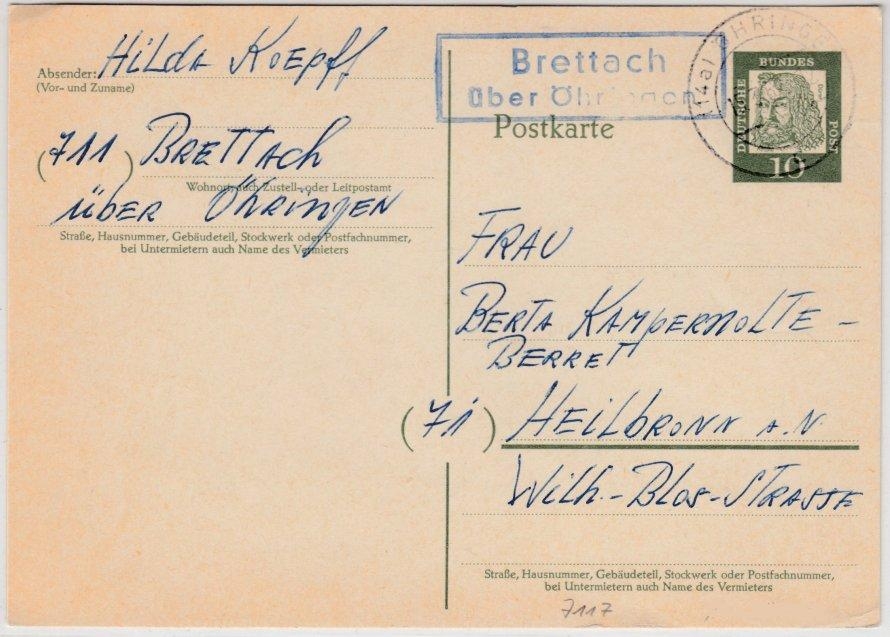 Absender: Hilda Koepff
(Vor- und Zuname)
(711) Brettach
Wohnort, auch Zustell- oder Leitpostamt
über Öhringen
Straße, Hausnummer, Gebäudeteil, Stockwerk oder Postfachnummer,
bei Untermietern auch Name des Vermieters
Brettach
über Öhringen
Postkarte
(14a) ÖHRINGEN
DEUTSCHE BUNDES POST
10
Frau
Berta Kampernolte-
Berret
(71) Heilbronn a.N.
Wilh.-Blos-Strasse
Straße, Hausnummer, Gebäudeteil, Stockwerk oder Postfachnummer,
bei Untermietern auch Name des Vermieters
7117